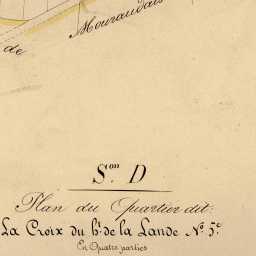 Mouraudais
de
S.on D
Plan du Quartier dit:
La Croix du bt. de la Lande No. 5.e
En Quatre parties